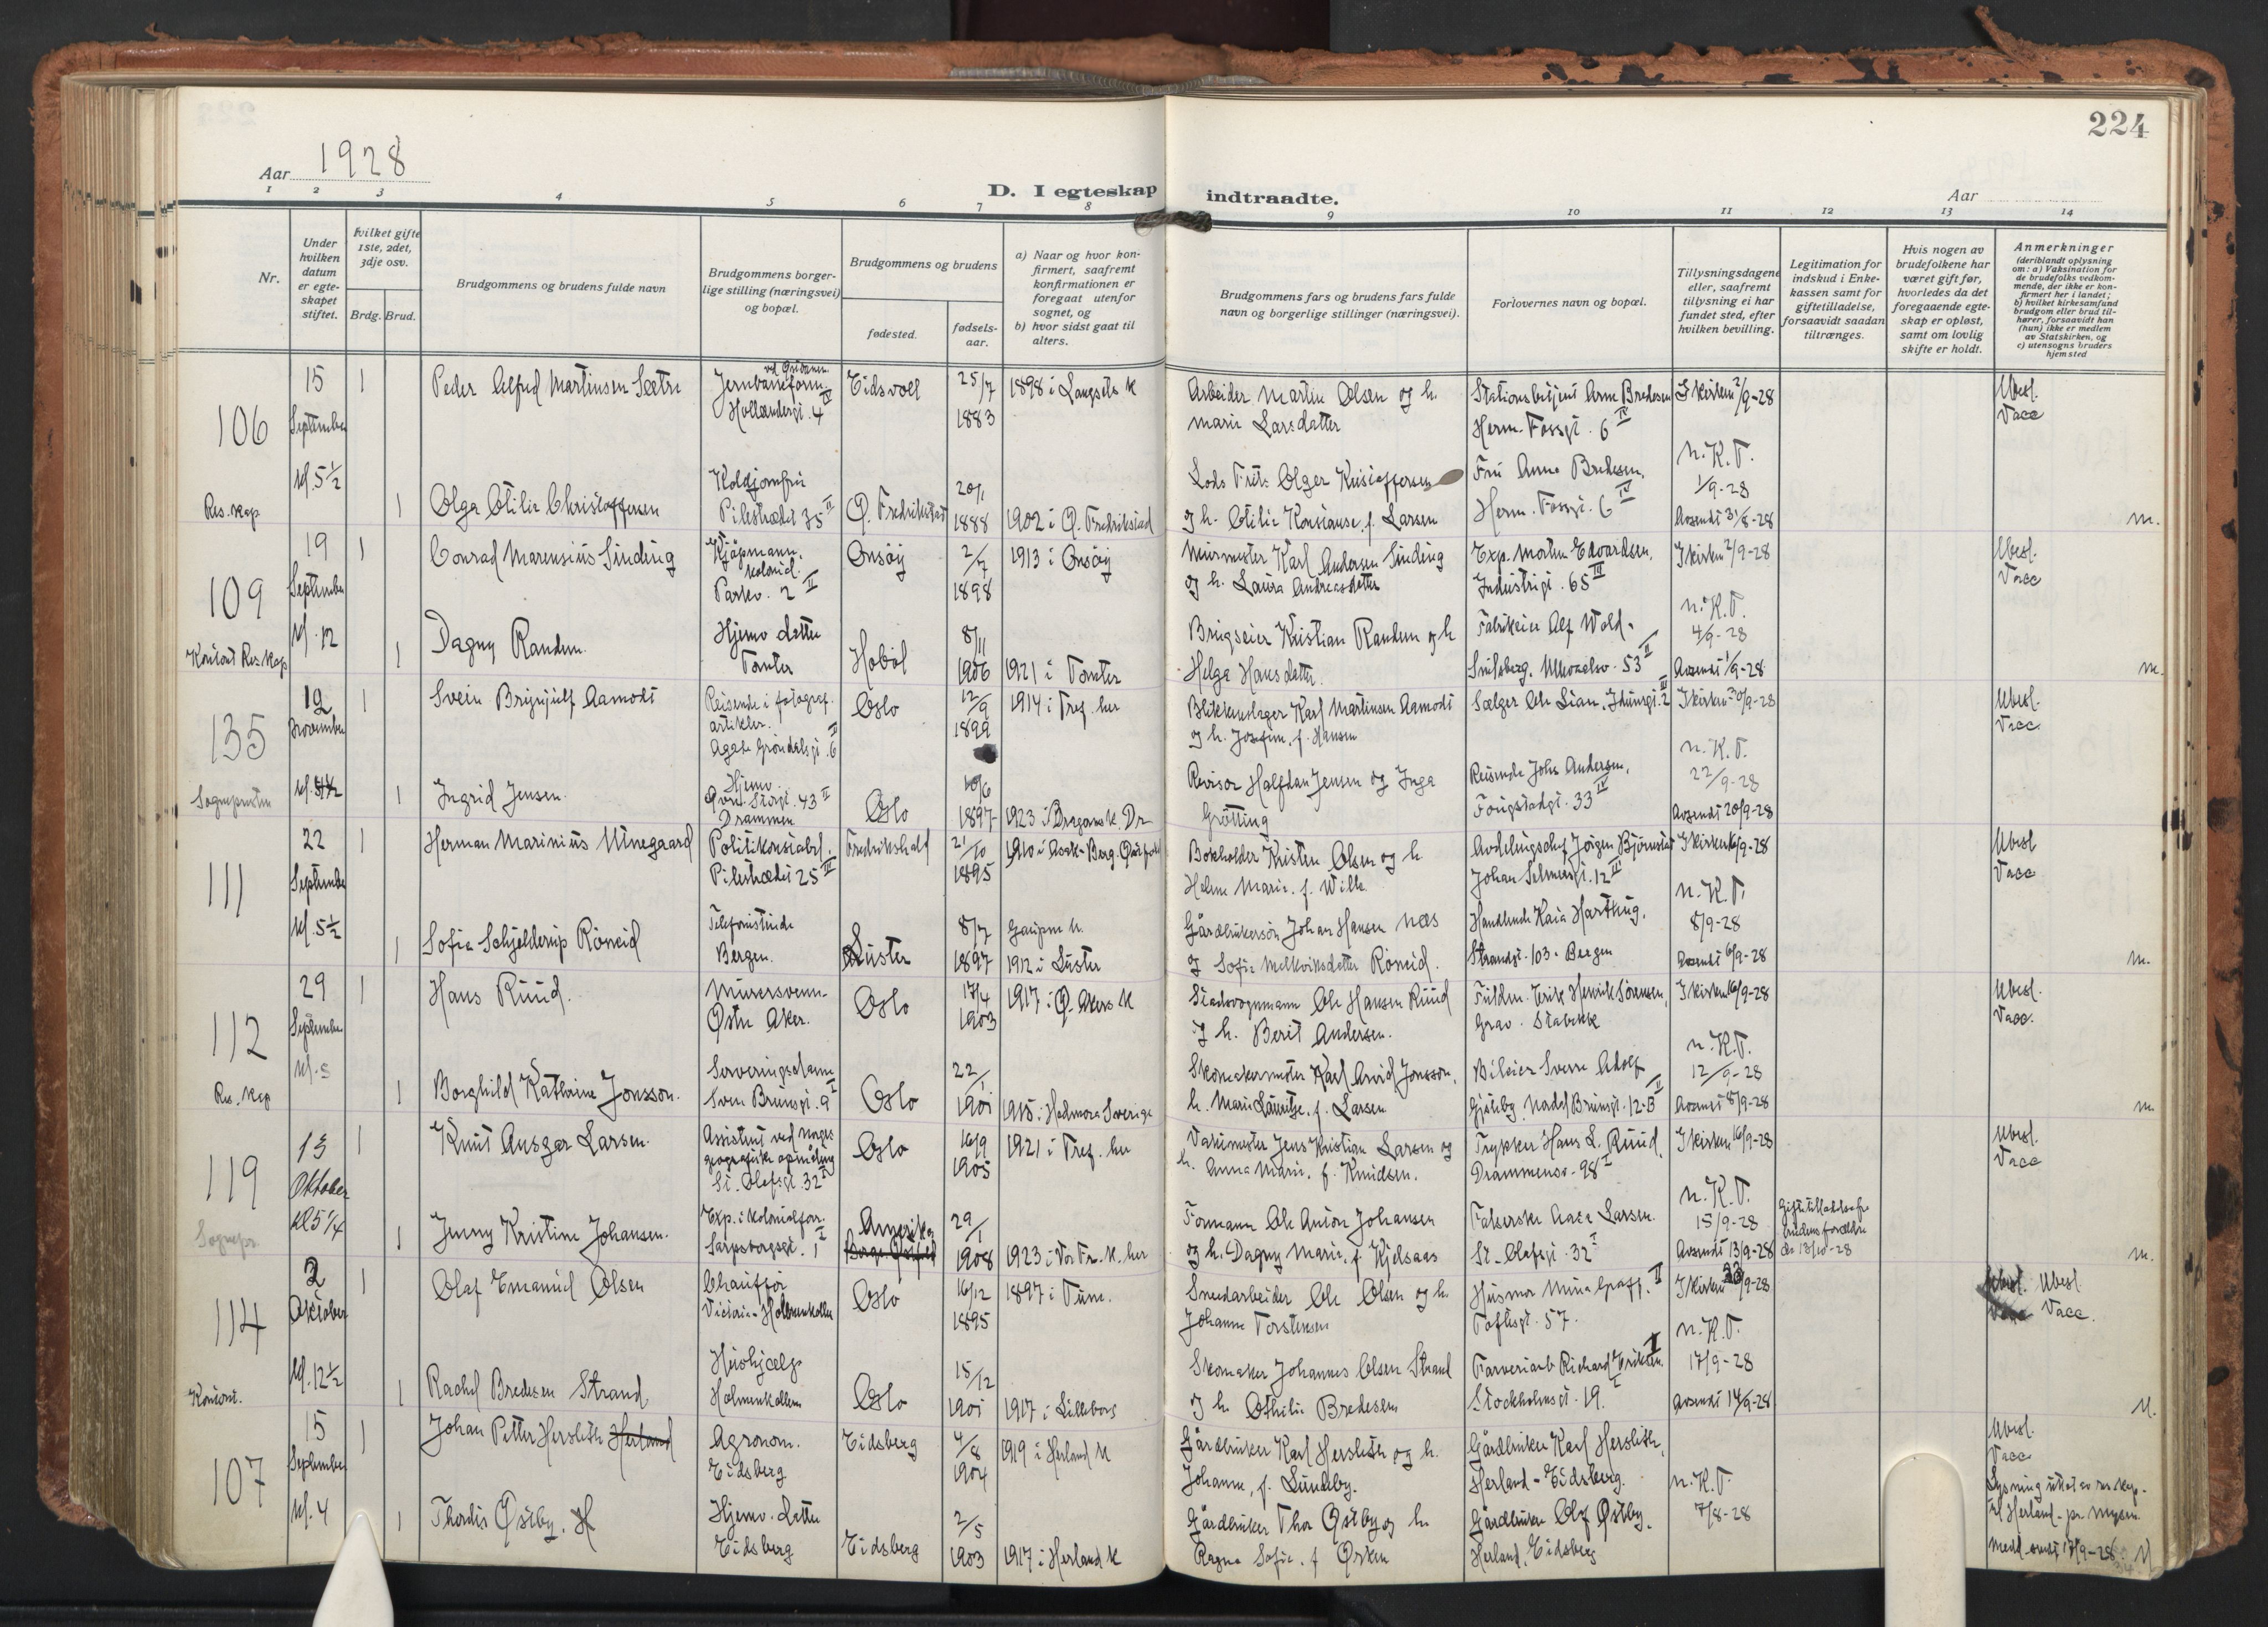 224
Aar 1928
D. I egteskap indtraadte.
Aar
1 2 3 4 5 6 7 8 9 10 11 12 13 14
Nr.
Under hvilken datum er egteskapet stiftet.
Hvilket gifte 1ste, 2det, 3dje osv.
Brdg. Brud.
Brudgommens og brudens fulde navn
Brudgommens borgerlige stilling (næringsvei) og bopæl.
Brudgommens og brudens
fødested.
fødselsaar.
a) Naar og hvor konfirmert, saafremt konfirmationen er foregaat utenfor sognet, og
b) hvor sidst gaat til alters.
Brudgommens fars og brudens fars fulde navn og borgerlige stillinger (næringsvei).
Forlovernes navn og bopæl.
Tillysningsdagene eller, saafremt tillysning ei har fundet sted, efter hvilken bevilling.
Legitimation for indskud i Enkekassen samt for giftetilladelse, forsaavidt saadan tiltrænges.
Hvis nogen av brudefolkene har været gift før, hvorledes da det foregaaende egteskap er opløst, samt om lovlig skifte er holdt.
Anmerkninger
(deriblandt oplysning om: a) Vaksination for de brudefolks vedkommende, der ikke er konfirmert her i landet; b) hvilket kirkesamfund brudgom eller brud tilhører, forsaavidt han (hun) ikke er medlem av Statskirken, og c) utensogns bruders hjemsted
106
15 September kl. 5½
Res. kap
1 Peder Alfred Martinsen Sætre
Hollændergt. 4 IV
Eidsvoll
25/7 1883
1898 i Langsets k
Arbeider Martin Olsen og h.
Marie Larsdatter
Stationsbetjent Arne Bredesen
Herm. Fossgt. 6 IV
I kirken 2/9-28
Ubesl.
Vacc
1 Olga Otilie Christoffersen
Pilestrædet 35 II
Ø. Fredrikstad
20/1 1888
1902 i Ø. Fredrikstad
Lods Frits Olger Kristoffersen
og h. Otilie Konstanse, f. Larsen
Fru Anna Bredesen,
Herm. Fossgt. 6 IV
N.K.T.
1/9-28
Avsendt 31/8-28
m.
109
19 September kl. 12
Kontoret Res. kap
1 Conrad Marensius Sinding
Kjøpmann, kolonial.
Parkv. 2 II
Onsøy
2/7 1898
1913 i Onsøy
Murmester Karl Andersen Sinding
og h. Laura Andreasdatter
Exp. Morten Edvardsen,
Industrigt. 65 III
I kirken 2/9-28
Ubesl.
Vacc
1 Dagny Randem.
Hjemv. datter
Tomter
Hobøl
8/11 1906
1921 i Tomter
Brugseier Kristian Randem og h
Helga Hansdatter.
Fabrikeier Alf Wold.
Ullevoldsv. 53 II
N.K.T.
4/9-28
Avsendt 1/9-28
m.
135
12 November
Sogneprsten
1 Svein Brynjulf Aamodt
Reisende i fotograf. artikler.
Agate Grøndalsgt. 6 II
Oslo
12/9 1899
1914 i Tref. her
Blikkenslager Karl Martinsen Aamodt
og h. Josefine, f. Hansen
Sælger Ole Lian, Idunsgt. 2 III
I kirken 30/9-28
Ubesl.
Vacc
1 Ingrid Jensen.
Hjemv.
Øvre Storgt. 43 II
Drammen
Oslo
10/6 1897
1923 i Bragernes k. Dr
Revisor Halfdan Jensen og Inga
Grøtting
Reisende Johs Andersen,
Fougstadgt. 33 IV
N.K.T.
22/9-28
Avsendt 20/9-28
111
22 September kl. 5½
1 Herman Marinius Unegaard
Politikonstabel.
Pilestrædet 25 III
Fredrikshald
21/10 1895
Bokholder Kristen Olsen og h.
Helene Marie. f. Wilh.
Avdelingschef Jørgen Bjørnstad
Johan Selmersgt. 12 III
I kirken 16/9-28
Ubesl
Vacc
1 Sofie Schjelderup Røneid
Telefonistinde
Bergen.
Luster
8/7 1897
Gaupne k.
1912 i Luster
Gårdbrukersøn Johan Hansen Næs
og Sofie Melkviksdatter Røneid.
Handlende Kaia Harthug,
Strandgt. 103. Bergen
N.K.T.
8/9-28
Avsendt 6/9-28
m.
112
29 September
Res. kap
1 Hans Ruud.
Murersvenn.
Østre Aker.
Oslo
17/4 1903
1917 i Ø. Akers k
Stadsvognmann Ole Hansen Ruud
og h. Berit Andersen.
Fuldm. Erik Henrik Sørensen,
Grav. Stabekk
I kirken 16/9-28
Ubesl.
Vacc.
1 Borghild Kathrine Jonsson.
Serveringsdame
Sven Brunsgt. 9 I
Oslo
22/1 1901
1915 i Hedmora Sverige
Skomakermester Karl Arvid Jonsson,
h. Marie Lauritze, f. Larsen
Bileier Sverre Adolf
Gjøteby. Nordal Brunsgt. 12 B II
N.K.T.
12/9-28
Avsendt 8/9-28
m.
119
13 Oktober kl 5¼
Sognepr.
1 Knut Ansgar Larsen.
Assistent ved Norges geografiske opmåling
St. Olafsgt. 32 I
Oslo
16/9 1905
1921 i Tref. her
Vaktmester Jens Kristian Larsen og
h. Anna Marie. f. Knudsen.
Trykker Hans L. Ruud,
Drammensv. 98 I
I kirken 16/9-28
Ubesl.
Vacc
1 Jenny Kristine Johansen.
Exp. i kolonialforr.
Sarpsborggt. 1 I
Amerika
29/1 1908
1923 i Vor Fr. k. her
Formann Ole Anton Johansen
og h. Dagny Marie, f. Kjelsaas
Falserske Aase Larsen.
St. Olafsgt. 32 I
N.K.T.
15/9-28
Avsendt 13/9-28
Giftetilladelse fra brudens forældre da 13/10-28
m.
114
2 Oktober kl. 12½
Kontoret.
1 Olaf Emanuel Olsen
Chauffør
Victoria - Holmenkollen
Oslo
16/12 1895
1897 i Tune.
Smedarbeider Ole Olsen og h.
Johanne Torstensen
Husmor Mina Graff. II
Toftesgt. 57.
I kirken 23/9-28
Ubesl.
Vacc.
1 Rachel Bredesen Strand
Hushjælp
Holmenkollen
Oslo
15/12 1901
1917 i Lilleborg
Skomaker Johannes Olsen Strand
og h. Othilie Bredesen
Farveriarb Richard Eriksen.
Stockholmsgt. 19 I
N.K.T.
17/9-28
Avsendt 14/9-28
M.
107
15 September kl. 4
1 Johan Petter Hersleth Herland
Agronom.
Eidsberg
Eidsberg
4/8 1904
1919 i Herland k
Gårdbruker Karl Hersleth og h.
Johanne, f. Lundby.
Gårdbruker Karl Hersleth,
Herland - Eidsberg.
Ubesl.
Vacc
1 Thordis Østby. H
Hjemv. datter
Eidsberg
Eidsberg
2/5 1903
1917 i Herland k
Gårdbruker Thor Østby og h.
Ragna Sofie. f Ørken
Gårdbruker Olaf Østby.
Herland, Eidsberg
N.K.T.
7/8-28
Lysning utført av res. kap.
til Herland - pr. Mysen.
Medl. sendt 17/9-28 M